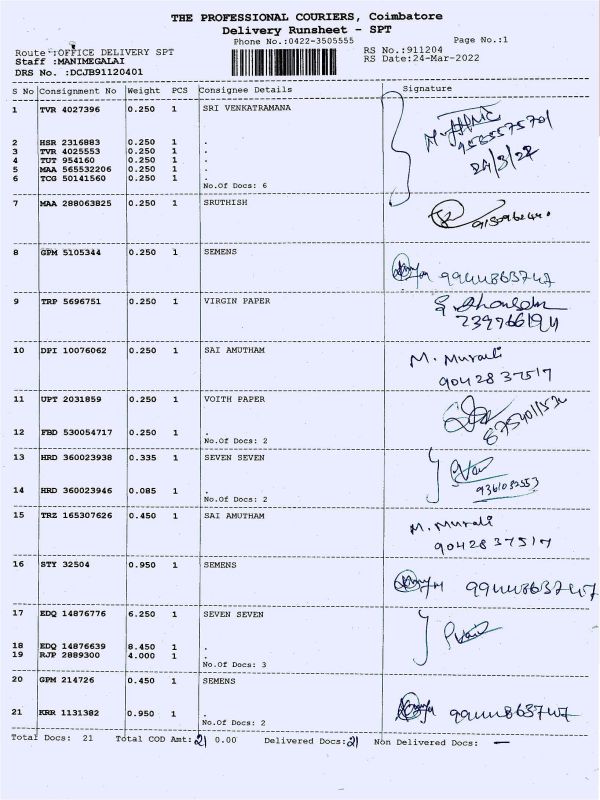 THE PROFESSIONAL COURIERS, Coimbatore
Delivery Runsheet - SPT
Phone No.:0422-3505555 Page No.:1
Route :OFFICE DELIVERY SPT RS No.:911204
Staff :MANIMEGALAI RS Date:24-Mar-2022
DRS No. :DCJB91120401
S No Consignment No Weight PCS Consignee Details Signature
1 TVR 4027396 0.250 1 SRI VENKATRAMANA
2 HSR 2316883 0.250 1 .
3 TVR 4025553 0.250 1 .
4 TUT 954160 0.250 1 .
5 MAA 565532206 0.250 1 .
6 TCG 50141560 0.250 1 .
No.Of Docs: 6
24/3/22
7 MAA 288063825 0.250 1 SRUTHISH
8 GPM 5105344 0.250 1 SEMENS
9944863747
9 TRP 5696751 0.250 1 VIRGIN PAPER
10 DPI 10076062 0.250 1 SAI AMUTHAM
M. Murali
9042837517
11 UPT 2031859 0.250 1 VOITH PAPER
12 FBD 530054717 0.250 1 .
No.Of Docs: 2
13 HRD 360023938 0.335 1 SEVEN SEVEN
14 HRD 360023946 0.085 1 .
No.Of Docs: 2
15 TRZ 165307626 0.450 1 SAI AMUTHAM
M. Murali
9042837517
16 STY 32504 0.950 1 SEMENS
9944863747
17 EDQ 14876776 6.250 1 SEVEN SEVEN
18 EDQ 14876639 8.450 1 .
19 RJP 2889300 4.000 1 .
No.Of Docs: 3
20 GPM 214726 0.450 1 SEMENS
21 KRR 1131382 0.950 1 .
No.Of Docs: 2
9944863747
Total Docs: 21 Total COD Amt: 21 0.00 Delivered Docs: 21 Non Delivered Docs: —